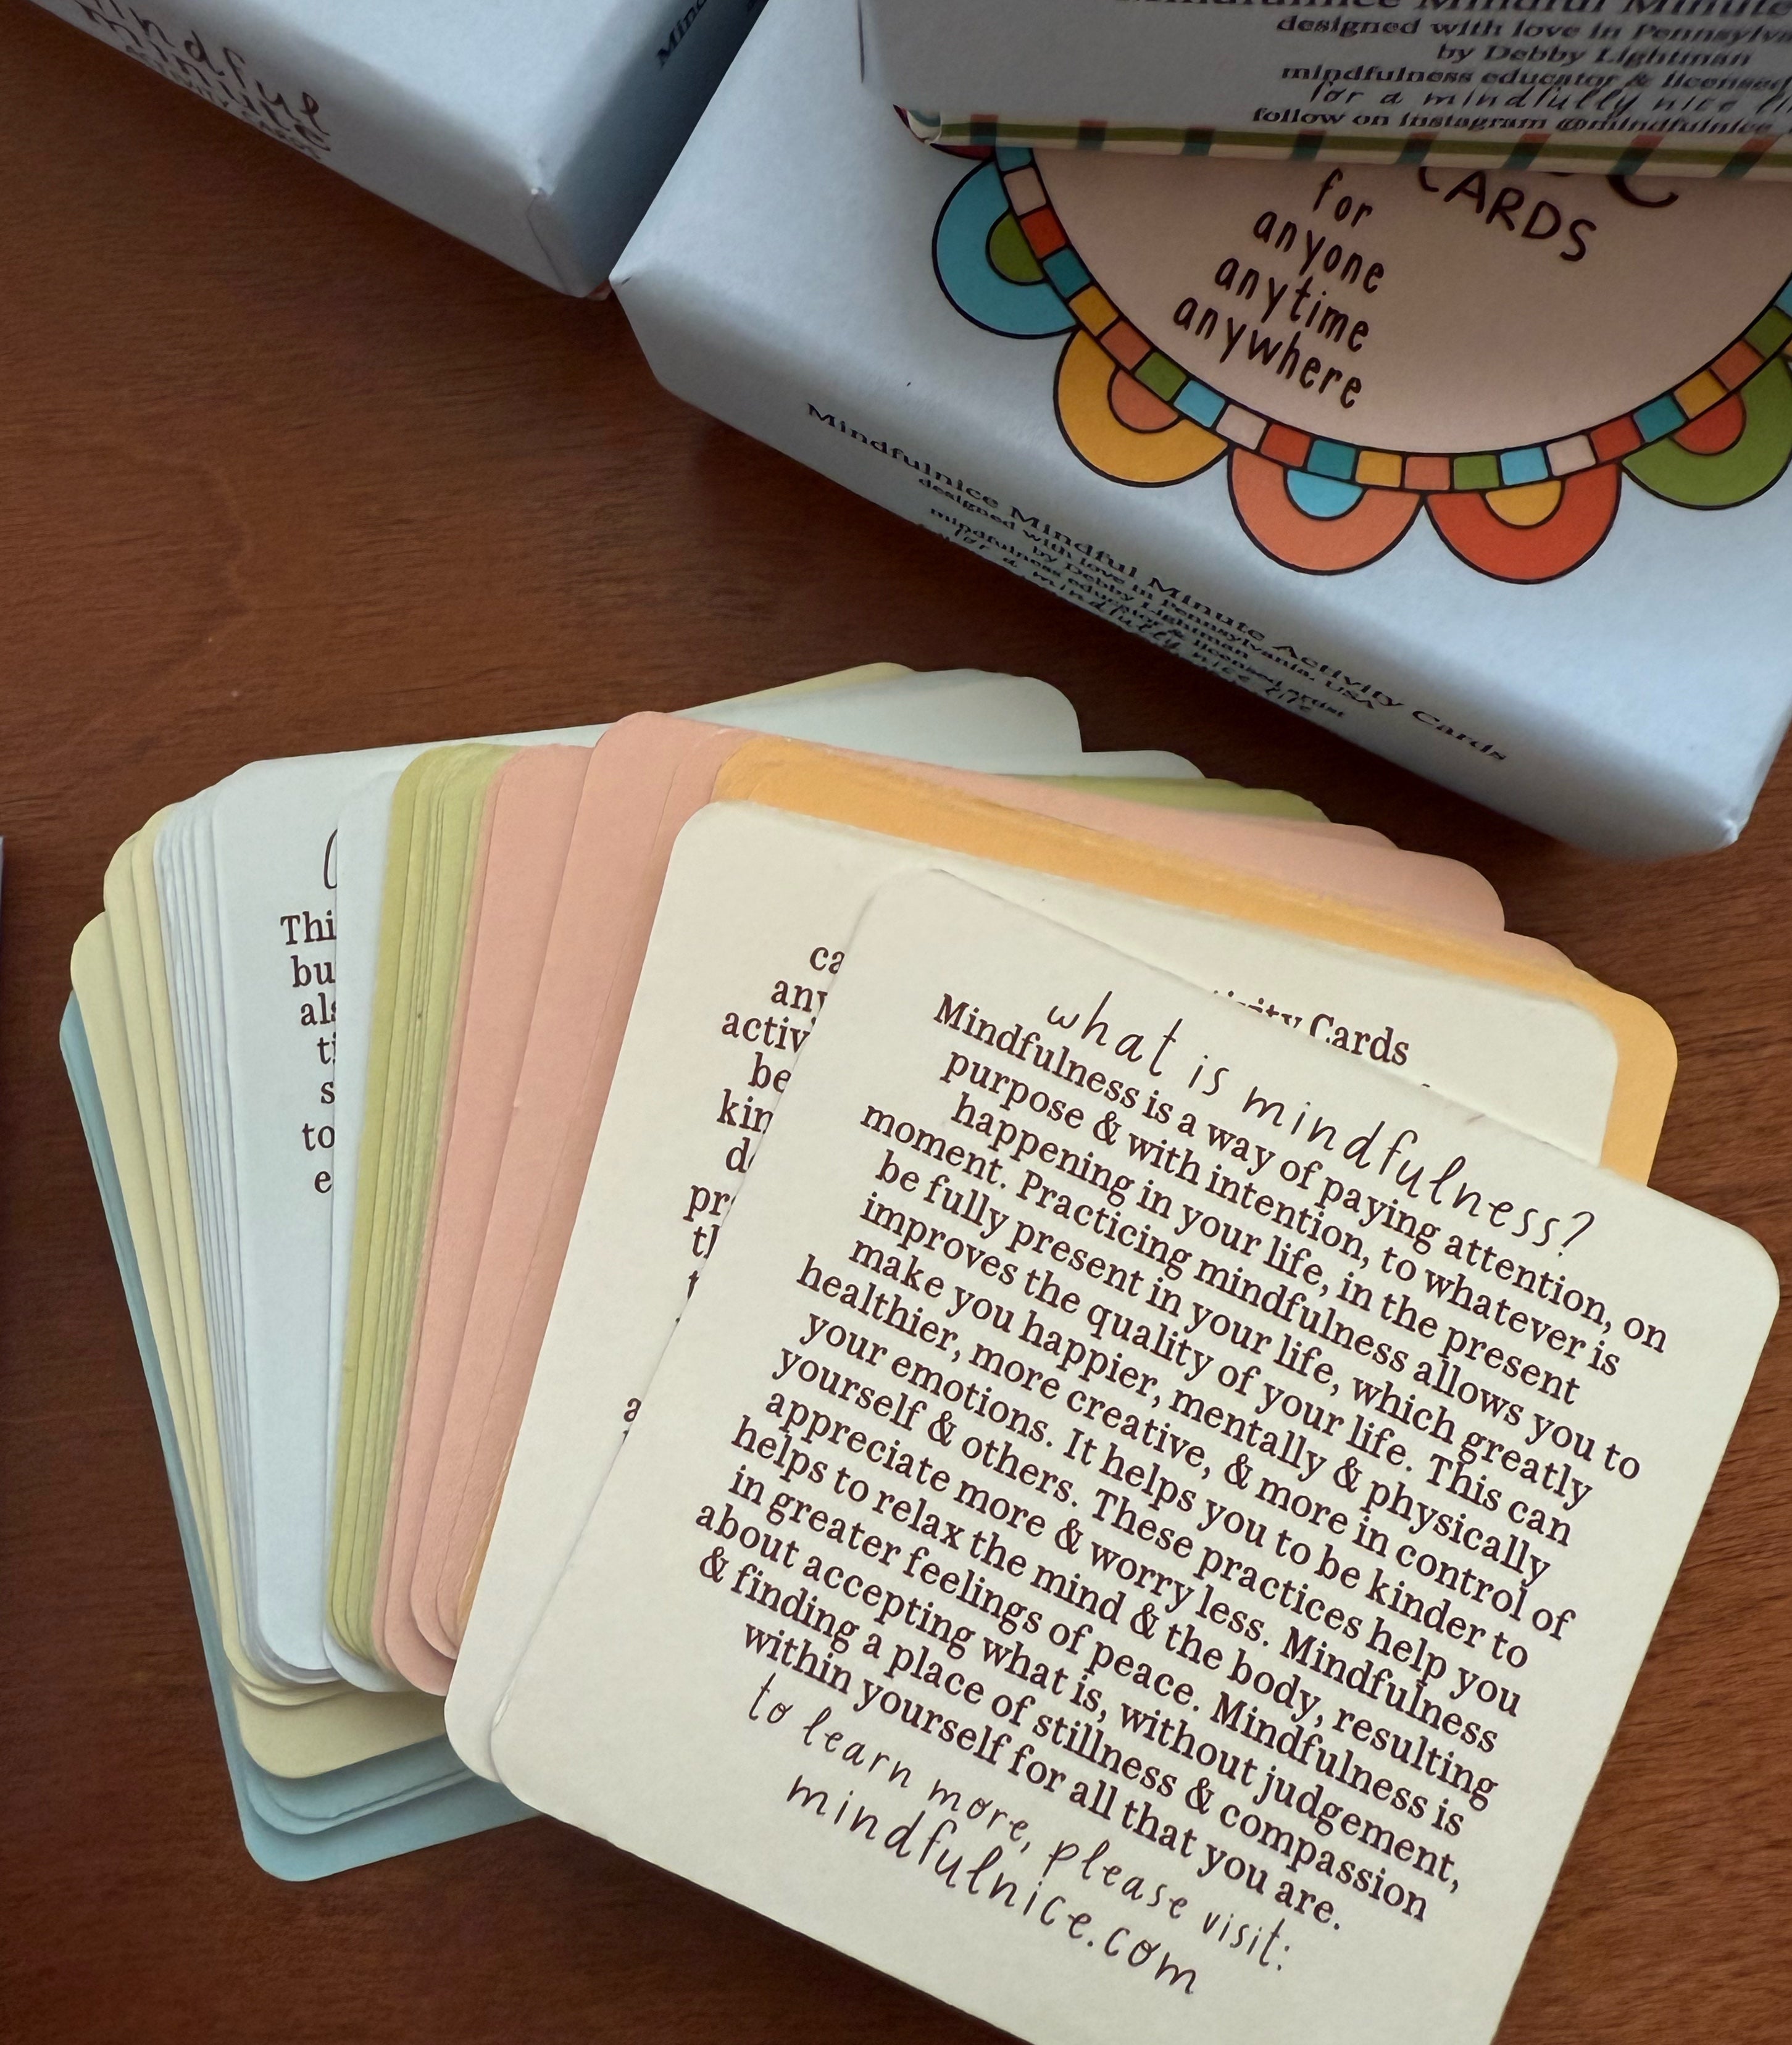 mindful
minute
Mind
Mindfulnice Mindful Minute
designed with love in
by Debby Lightman
mindfulness educator & licensed
for a mindfully nice
follow on instagram @mindfulnice
CARDS
for
anyone
anytime
anywhere
Mindfulnice Mindful Minute Activity Cards
designed with love in Pennsylvania, USA
by Debby Lightman
mindfulness educator & licensed artist
for a mindfully nice life
Thi
bu
als
ti
s
to
e
ca
any
activ
be
kin
d
pr
th
a
Cards
what is mindfulness?
Mindfulness is a way of paying attention, on
purpose & with intention, to whatever is
happening in your life, in the present
moment. Practicing mindfulness allows you to
be fully present in your life, which greatly
improves the quality of your life. This can
make you happier, mentally & physically
healthier, more creative, & more in control of
your emotions. It helps you to be kinder to
yourself & others. These practices help you
appreciate more & worry less. Mindfulness
helps to relax the mind & the body, resulting
in greater feelings of peace. Mindfulness is
about accepting what is, without judgement,
& finding a place of stillness & compassion
within yourself for all that you are.
to learn more, please visit:
mindfulnice.com